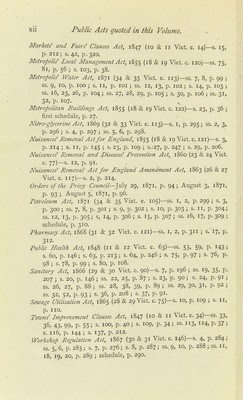 xii Public Acts quoted in this Volume.
Markets' and Fairs' Clauses Act, 1847 (10 & 11 Vict. c. 14)—s. 15,
p. 212; s. 42, p. 320.
Metropolis' Local Management Act, 1855 (18 & 19 Vict. c. 120)—ss. 75,
81, p. 56; s. 103, p. 38.
Metropolis' Water Act, 1871 (34 & 35 Vict. c. 113)—ss. 7, 8, p. 99;
ss. 9, 10, p. 100; s. 11, p. 101; ss. 12, 13, p. 102; s. 14, p. 103;
ss. 16, 23, 26, p. 104; ss. 27, 28, 29, p. 105; s. 30, p. 106; ss. 31,
32, p. 107.
Metropolitan Buildings Act, 1855 (18 & 19 Vict. c. 122)—s. 23, p. 36;
first schedule, p. 27.
Nitro-glycerine Act, 1869 (32 & 33 Vict. c. 113)—s. 1, p. 295; ss. 2, 3,
p. 296; s. 4, p. 297; ss. 5, 6, p. 298.
Nuisances' Removal Act for England, 1855 (18 & 19 Vict. c. 121)—s. 3,
p. 214; s. 11, p. 145; s. 23, p. 109; s. 27, p. 247; s. 29, p. 206.
Nuisances' Removal and Diseases' Prevention Act, 1860 (23 & 24 Vict.
c. 77)—s. 12, p. 91.
Nuisances' Removal Act for England Amendment Act, 1863 (26 & 27
Vict. c. 117)—s. 2, p. 214.
Orders of the Privy Council—July 29, 1871, p. 94; August 3, 1871,
p. 93; August 5, 1871, p. 96.
Petroleum Act, 1871 (34 & 35 Vict. c. 105)—ss. 1, 2, p. 299; s. 3,
p. 300; ss. 7, 8, p. 301; s. 9, p. 302; s. 10, p. 303; s. 11, p. 304;
ss. 12, 13, p. 305; s. 14, p. 306; s. 15, p. 307; ss. 16, 17, p. 309;
schedule, p. 310.
Pharmacy Act, 1868 (31 & 32 Vict. c. 121)—ss. 1, 2, p. 311; s. 17, p.
312.
Public Health Act, 1848 (11 & 12 Vict. c. 63)—ss. 53, 59, p. 143;
s. 60, p. 146; s. 63, p. 213; s. 64, p. 246; s. 75, p. 97; s. 76, p.
98; s. 78, p. 99; s. 80, p. 108.
Sanitary Act, 1866 (29 & 30 Vict. c. 90)—s. 7, p. 196; ss. 19, 33, p.
207; s. 20, p. 146; ss. 22, 25, p. 87; s. 23, p. 90; s. 24, p. 91;
ss. 26, 27, p. 88; ss. 28, 38, 39, p. 89; ss. 29, 30, 31, p. 92;
ss. 32, 52, p. 93; s. 36, p. 208; s. 37, p. 91.
Sewage Utilisation Act, 1865 (28 & 29 Vict. c. 75)—s. 10, p. 109; s. 11,
p. 110.
Towns' Improvement Clauses Act, 1847 (10 & 11 Vict. c. 34)—ss. 33,
36, 43, 99, p. 55; s. 100, p. 40; s. 109, p. 34; ss. 113, 114, p. 37;
s. 116, p. 144; s. 137, p. 212.
Workshop Regulation Act, 1867 (30 & 31 Vict. c. 146)—s. 4, p. 284;
ss. 5, 6, p. 285; s. 7, p. 276; s. 8, p. 287; ss. 9, 10, p. 288; ss. 11,
18, 19, 20, p. 289; schedule, p. 290.